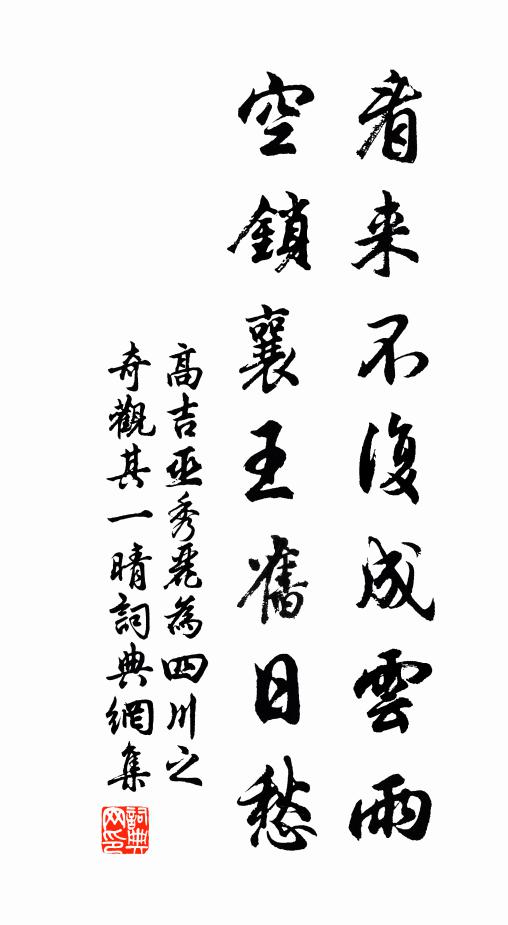 看来不復成雲雨
空鎖襄王舊日愁
高吉巫秀麗為四川之
奇觀其一晴詞典網集
詞典
网印